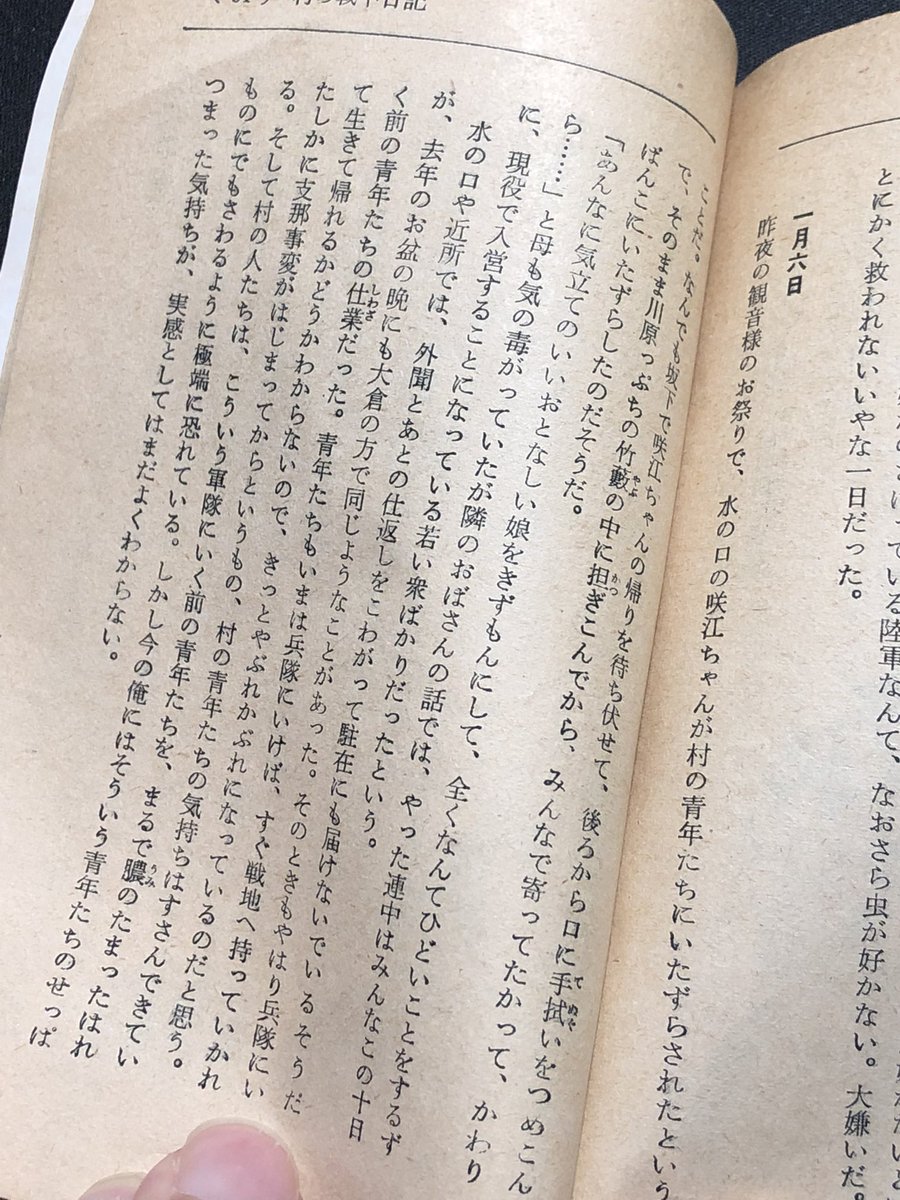 ている陸軍なんて、なおさら虫が好かない。大嫌いだ。
とにかく救われないいやな一日だった。
一月六日
昨夜の観音様のお祭りで、水の口の咲江ちゃんが村の青年たちにいたずらされたという
ことだ。なんでも坂下で咲江ちゃんの帰りを待ち伏せて、後るから口に手拭いをつめこん
で、そのまま川原っぷちの竹藪の中に担ぎこんでから、みんなで寄ってたかって、かわり
ばんこにいたずらしたのだそうだ。
「あんなに気立てのいいおとなしい娘をきずもんにして、全くなんてひどいことをするず
ら……」と母も気の毒がっていたが隣のおばさんの話では、やった連中はみんなこの十日
に、現役で入営することになっている若い衆ばかりだったという。
水の口や近所では、外聞とあとの仕返しをこわがって駐在にも届けないでいるそうだ
が、去年のお盆の晩にも大倉の方で同じようなことがあった。そのときもやはり兵隊にい
く前の青年たちの仕業だった。青年たちもいまは兵隊にいけば、すぐ戦地へ持っていかれ
て生きて帰れるかどうかわからないので、きっとやぶれかぶれになっているのだと思う。
たしかに支那事変がはじまってからというもの、村の青年たちの気持ちはすさんできてい
る。そして村の人たちは、こういう軍隊にいく前の青年たちを、まるで膿のたまったはれ
ものにでもさわるように極端に恐れている。しかし今の俺にはそういう青年たちのせっぱ
つまった気持ちが、実感としてはまだよくわからない。